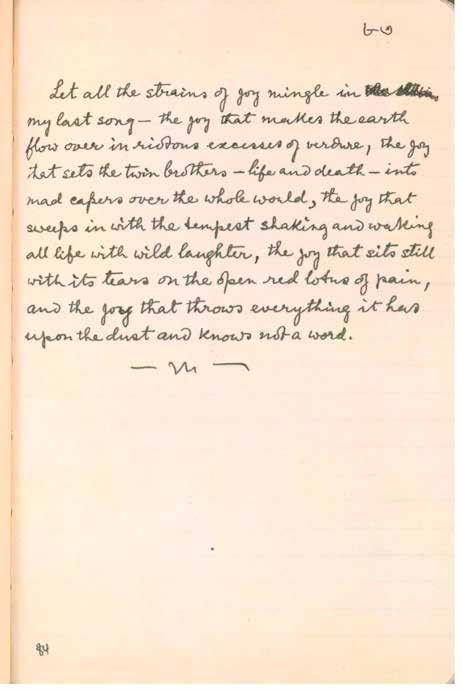 ৮৩
Let all the strains of joy mingle in
my last song — the joy that makes the earth
flow over in riotous excesses of verdure, the joy
that sets the twin brothers — life and death — into
mad capers over the whole world, the joy that
sweeps in with the tempest shaking and waking
all life with wild laughter, the joy that sits still
with its tears on the open red lotus of pain,
and the joy that throws everything it has
upon the dust and knows not a word.
84